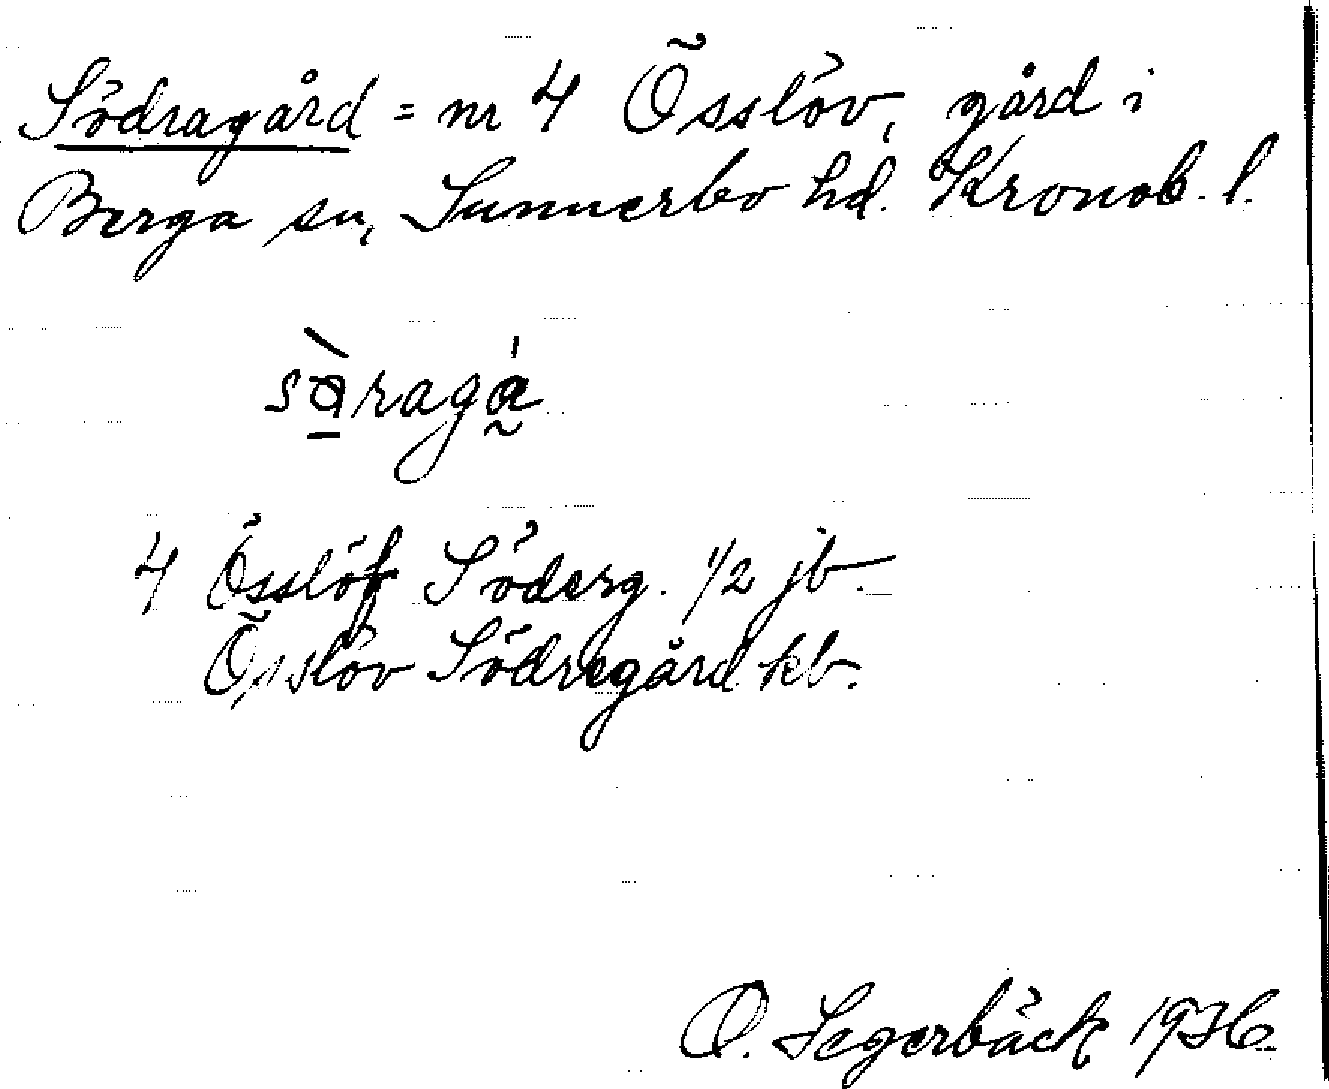 Södragård = nr 4 Össlöv, gård i
Berga sn, Sunnerbo hd. Kronob. l.
sàragá
4 Össlöf Söderg. 1/2 jb.
Össlöv Södregård kb.
O. Segerbäck 1936